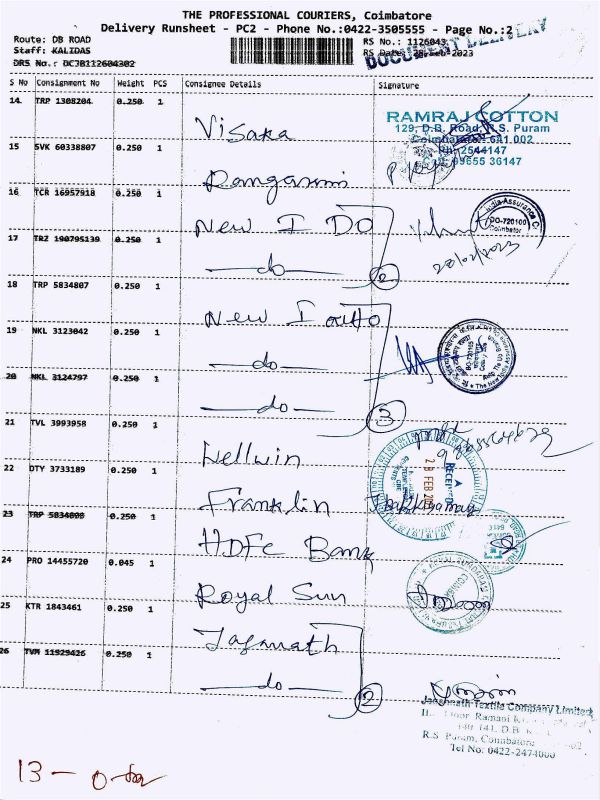 THE PROFESSIONAL COURIERS, Coimbatore
Delivery Runsheet - PC2 - Phone No.:0422-3505555 - Page No.:2
Route: DB ROAD
RS No.: 1126043
Staff: KALIDAS
RS Date: 28-Feb-2023
DOCUMENT DELIVERY
DRS No.: DCJB112604302
S No Consignment No Weight PCS Consignee Details Signature
14. TRP 1308204 0.250 1 Visaka
RAMRAJ COTTON
129, D.B. Road, R.S. Puram
Coimbatore - 641 002
Ph: 2544147
99655 36147
15 SVK 60338807 0.250 1
16 TCR 16957918 0.250 1 New I DO
India Assurance
DO-720100
Coimbator
17 TRZ 190795139 0.250 1 do 2
18 TRP 5834807 0.250 1 New I
19 NKL 3123042 0.250 1 do
20 NKL 3124797 0.250 1 do 3
21 TVL 3993958 0.250 1 Wellwin
22 DTY 3733189 0.250 1 Franklin
RECEIVED
28 FEB
23 TRP 5834808 0.250 1 HDFC Bank
24 PRO 14455720 0.045 1 Royal Sun
25 KTR 1843461 0.250 1 Jaganath
26 TVM 11929426 0.250 1 do 2
Jagannath Textile Company Limited
Floor Ramani
141, D.B.
R.S Puram, Coimbatore
Tel No: 0422-2474000
13 -